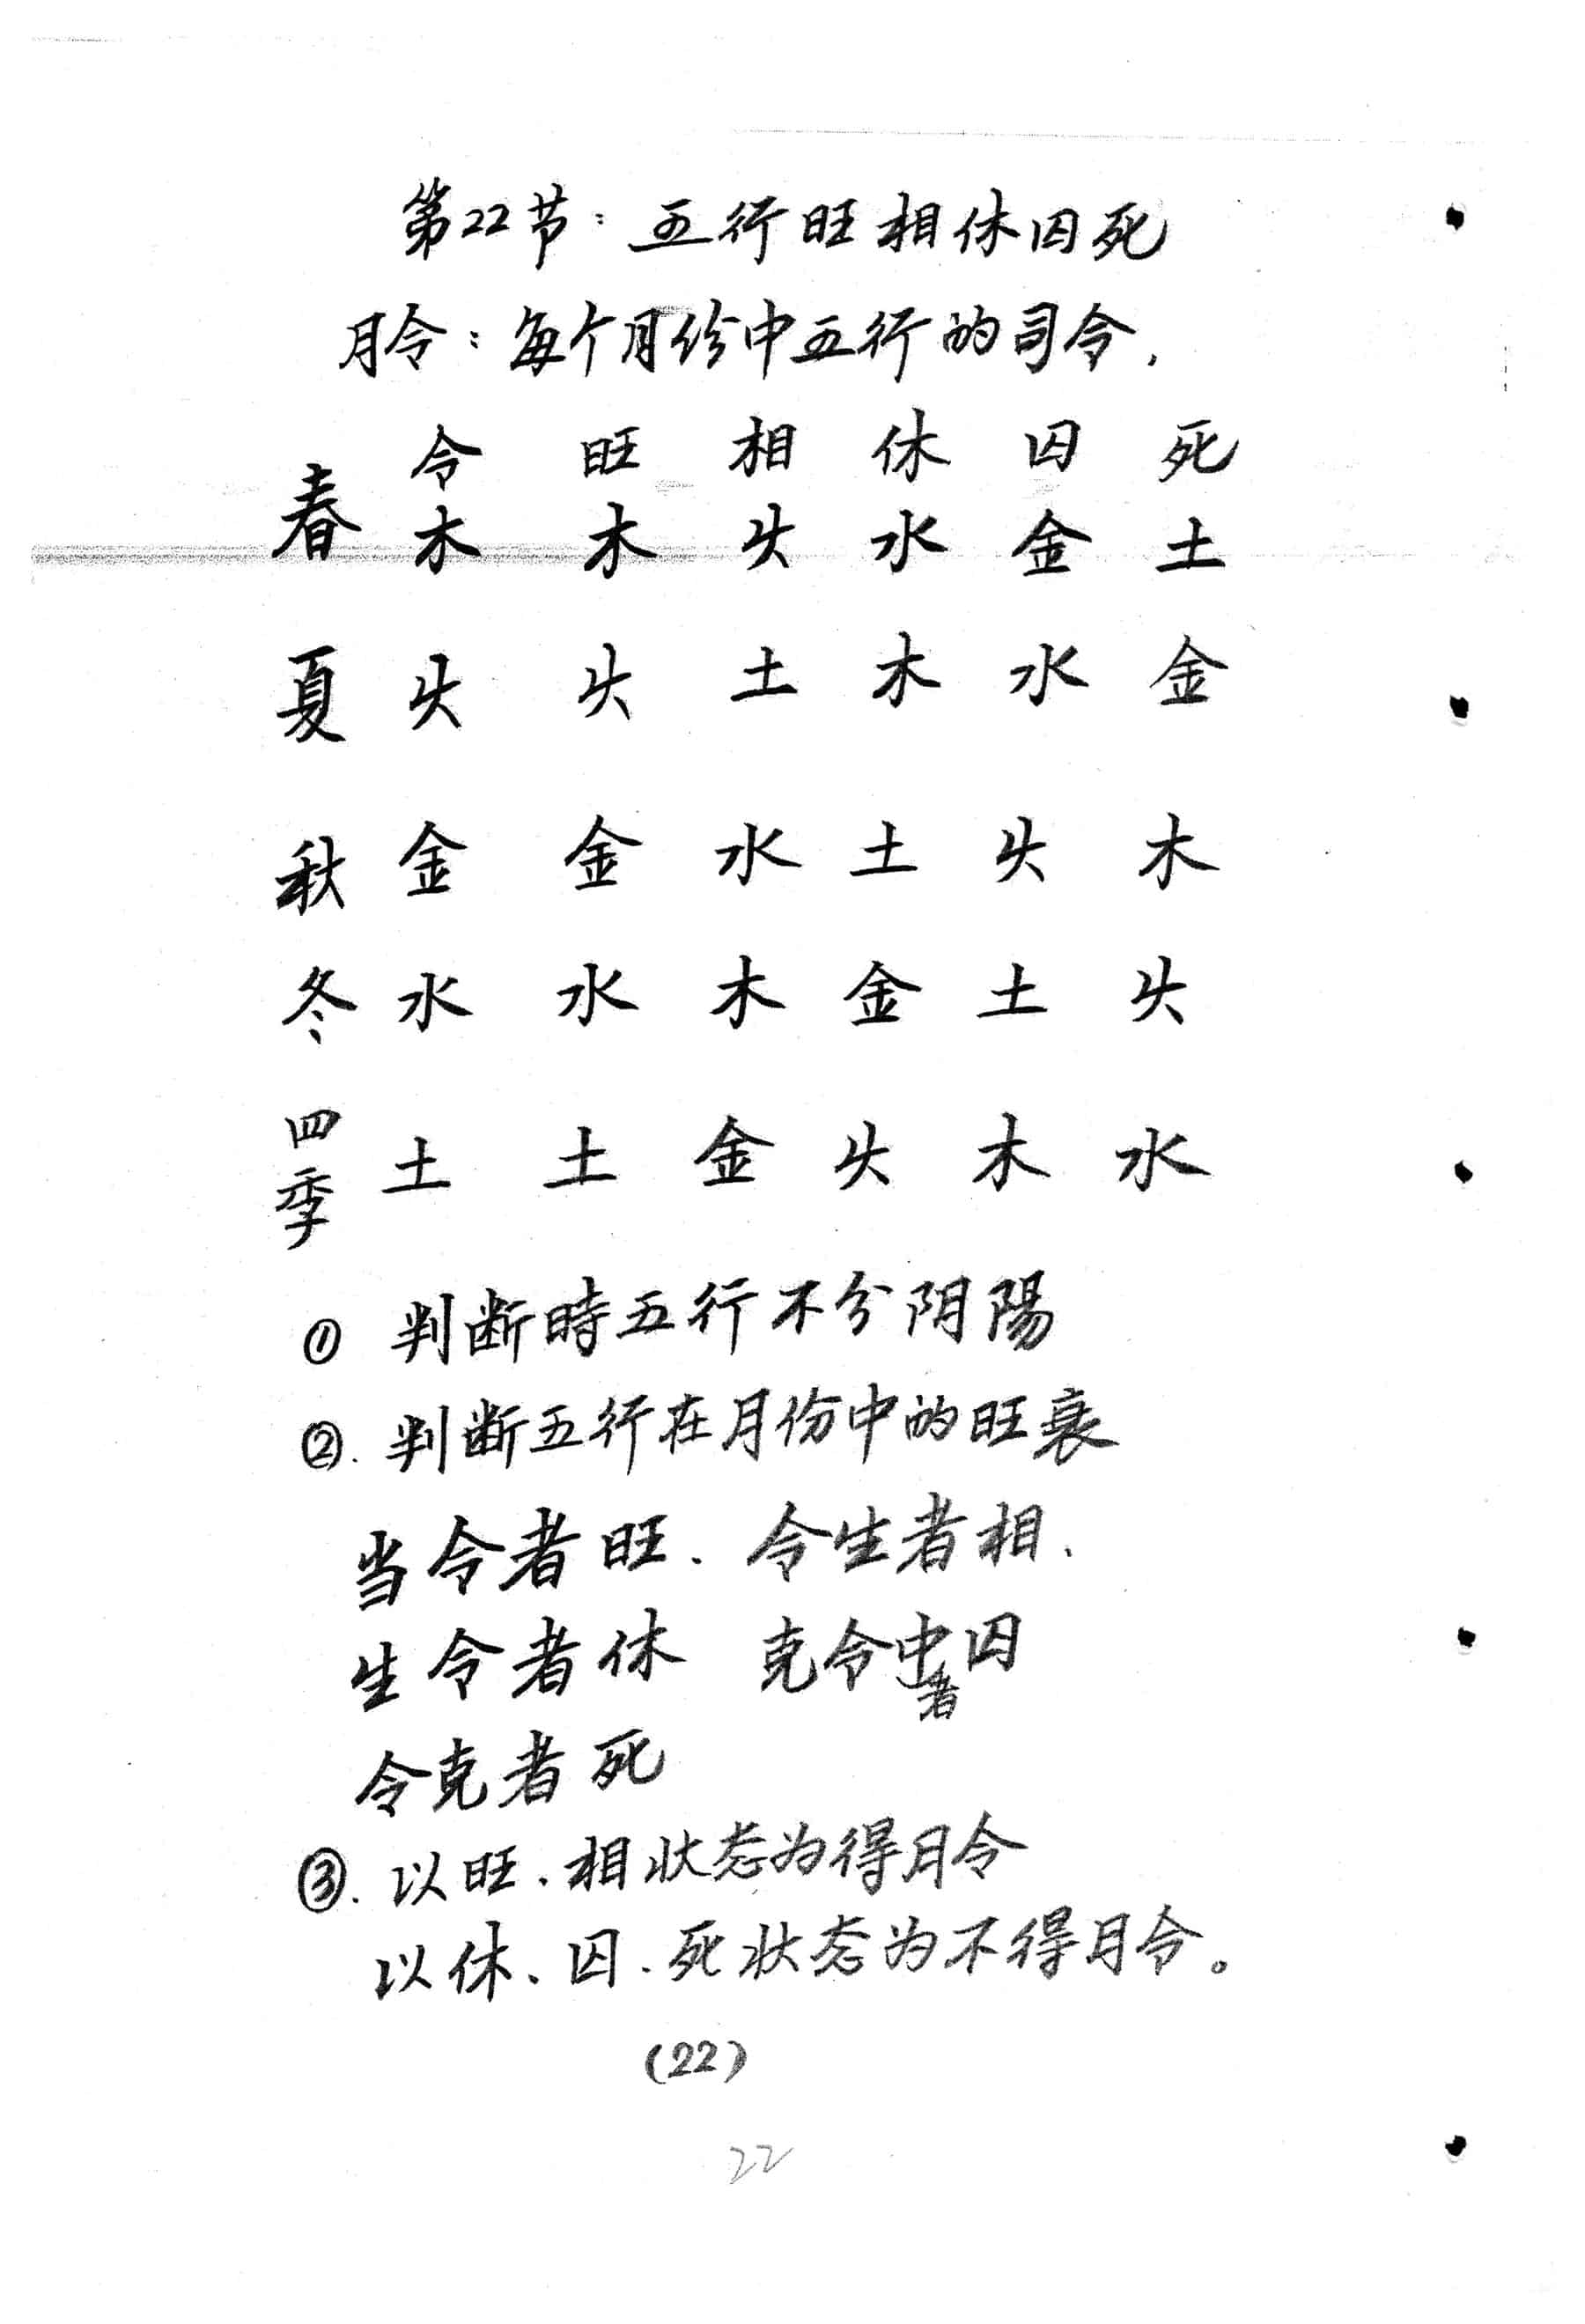 第22节：五行旺相休囚死
月令：每个月份中五行的司令.
令 旺 相 休 囚 死
春 木 木 火 水 金 土
夏 火 火 土 木 水 金
秋 金 金 水 土 火 木
冬 水 水 木 金 土 火
四季 土 土 金 火 木 水
① 判断時五行不分阴陽
②. 判断五行在月份中的旺衰
当令者旺、令生者相、
生令者休 克令中者囚
令克者死
③. 以旺、相状态为得月令
以休、囚、死状态为不得月令。
(22)
22